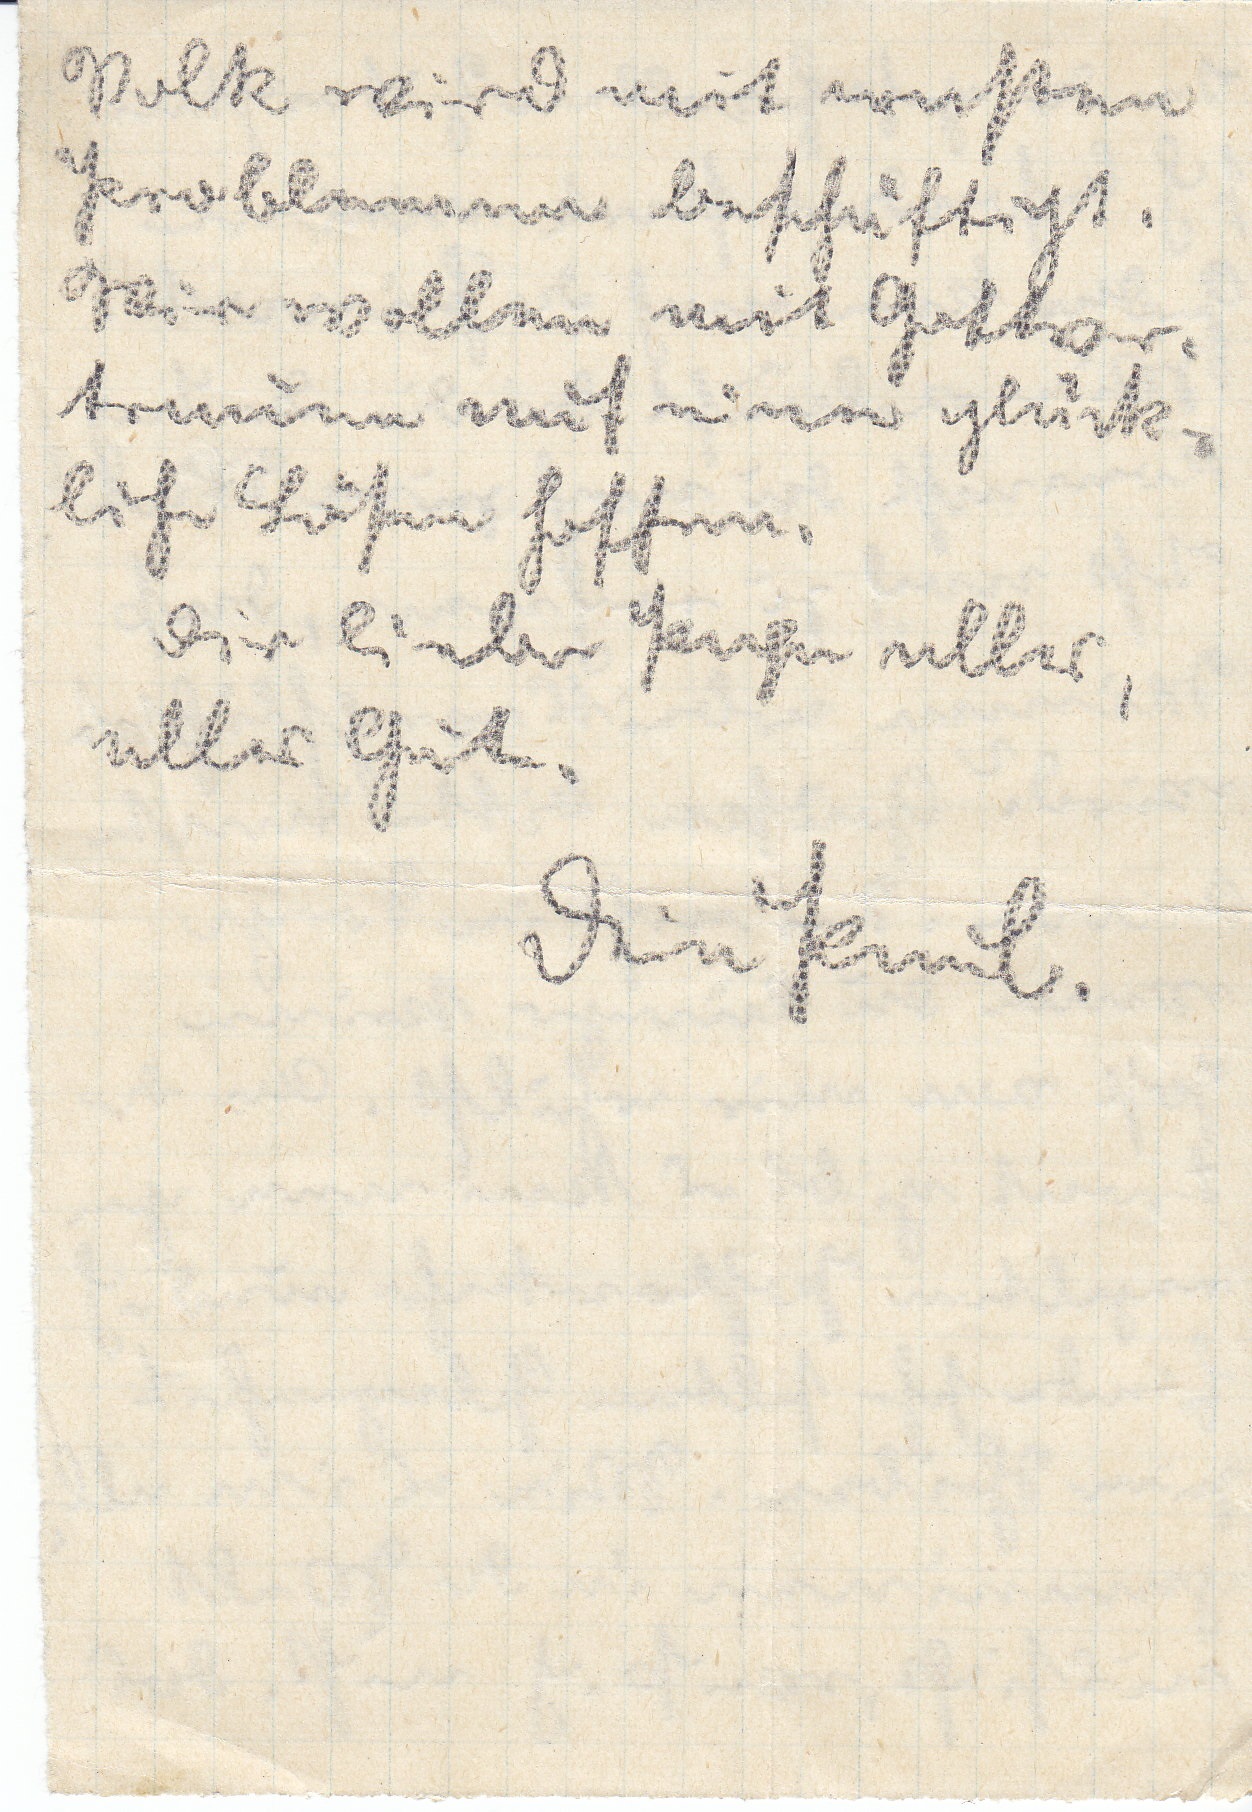 Volk wird mit ernsten
Problemen beschäftigt.
Wir wollen mit Gottver-
trauen auf eine glück-
liche hoffen.
Dir lieber alles,
alles Gute.
Dein Paul.